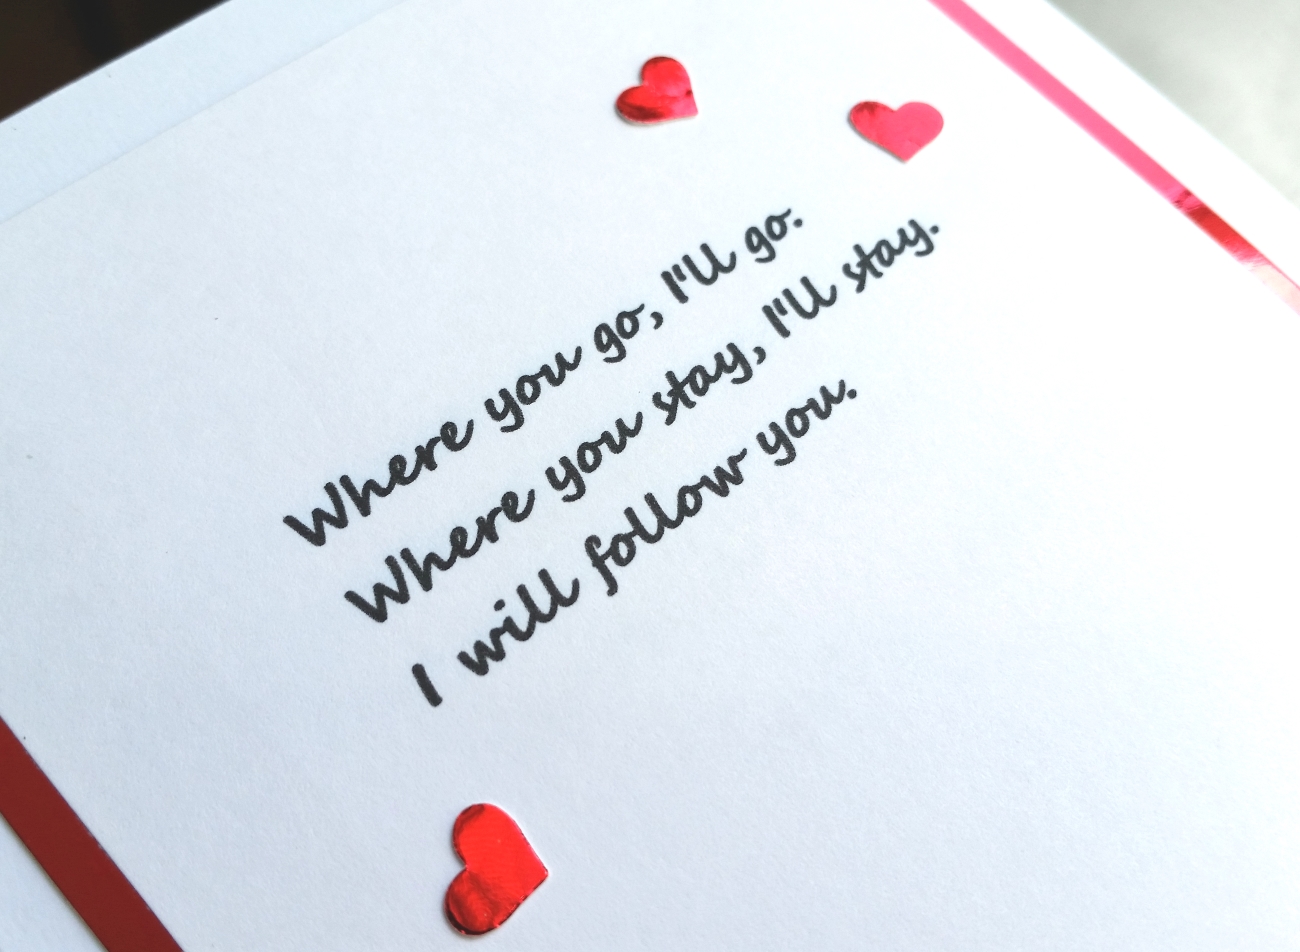 Where you go, I'll go.
Where you stay, I'll stay.
I will follow you.